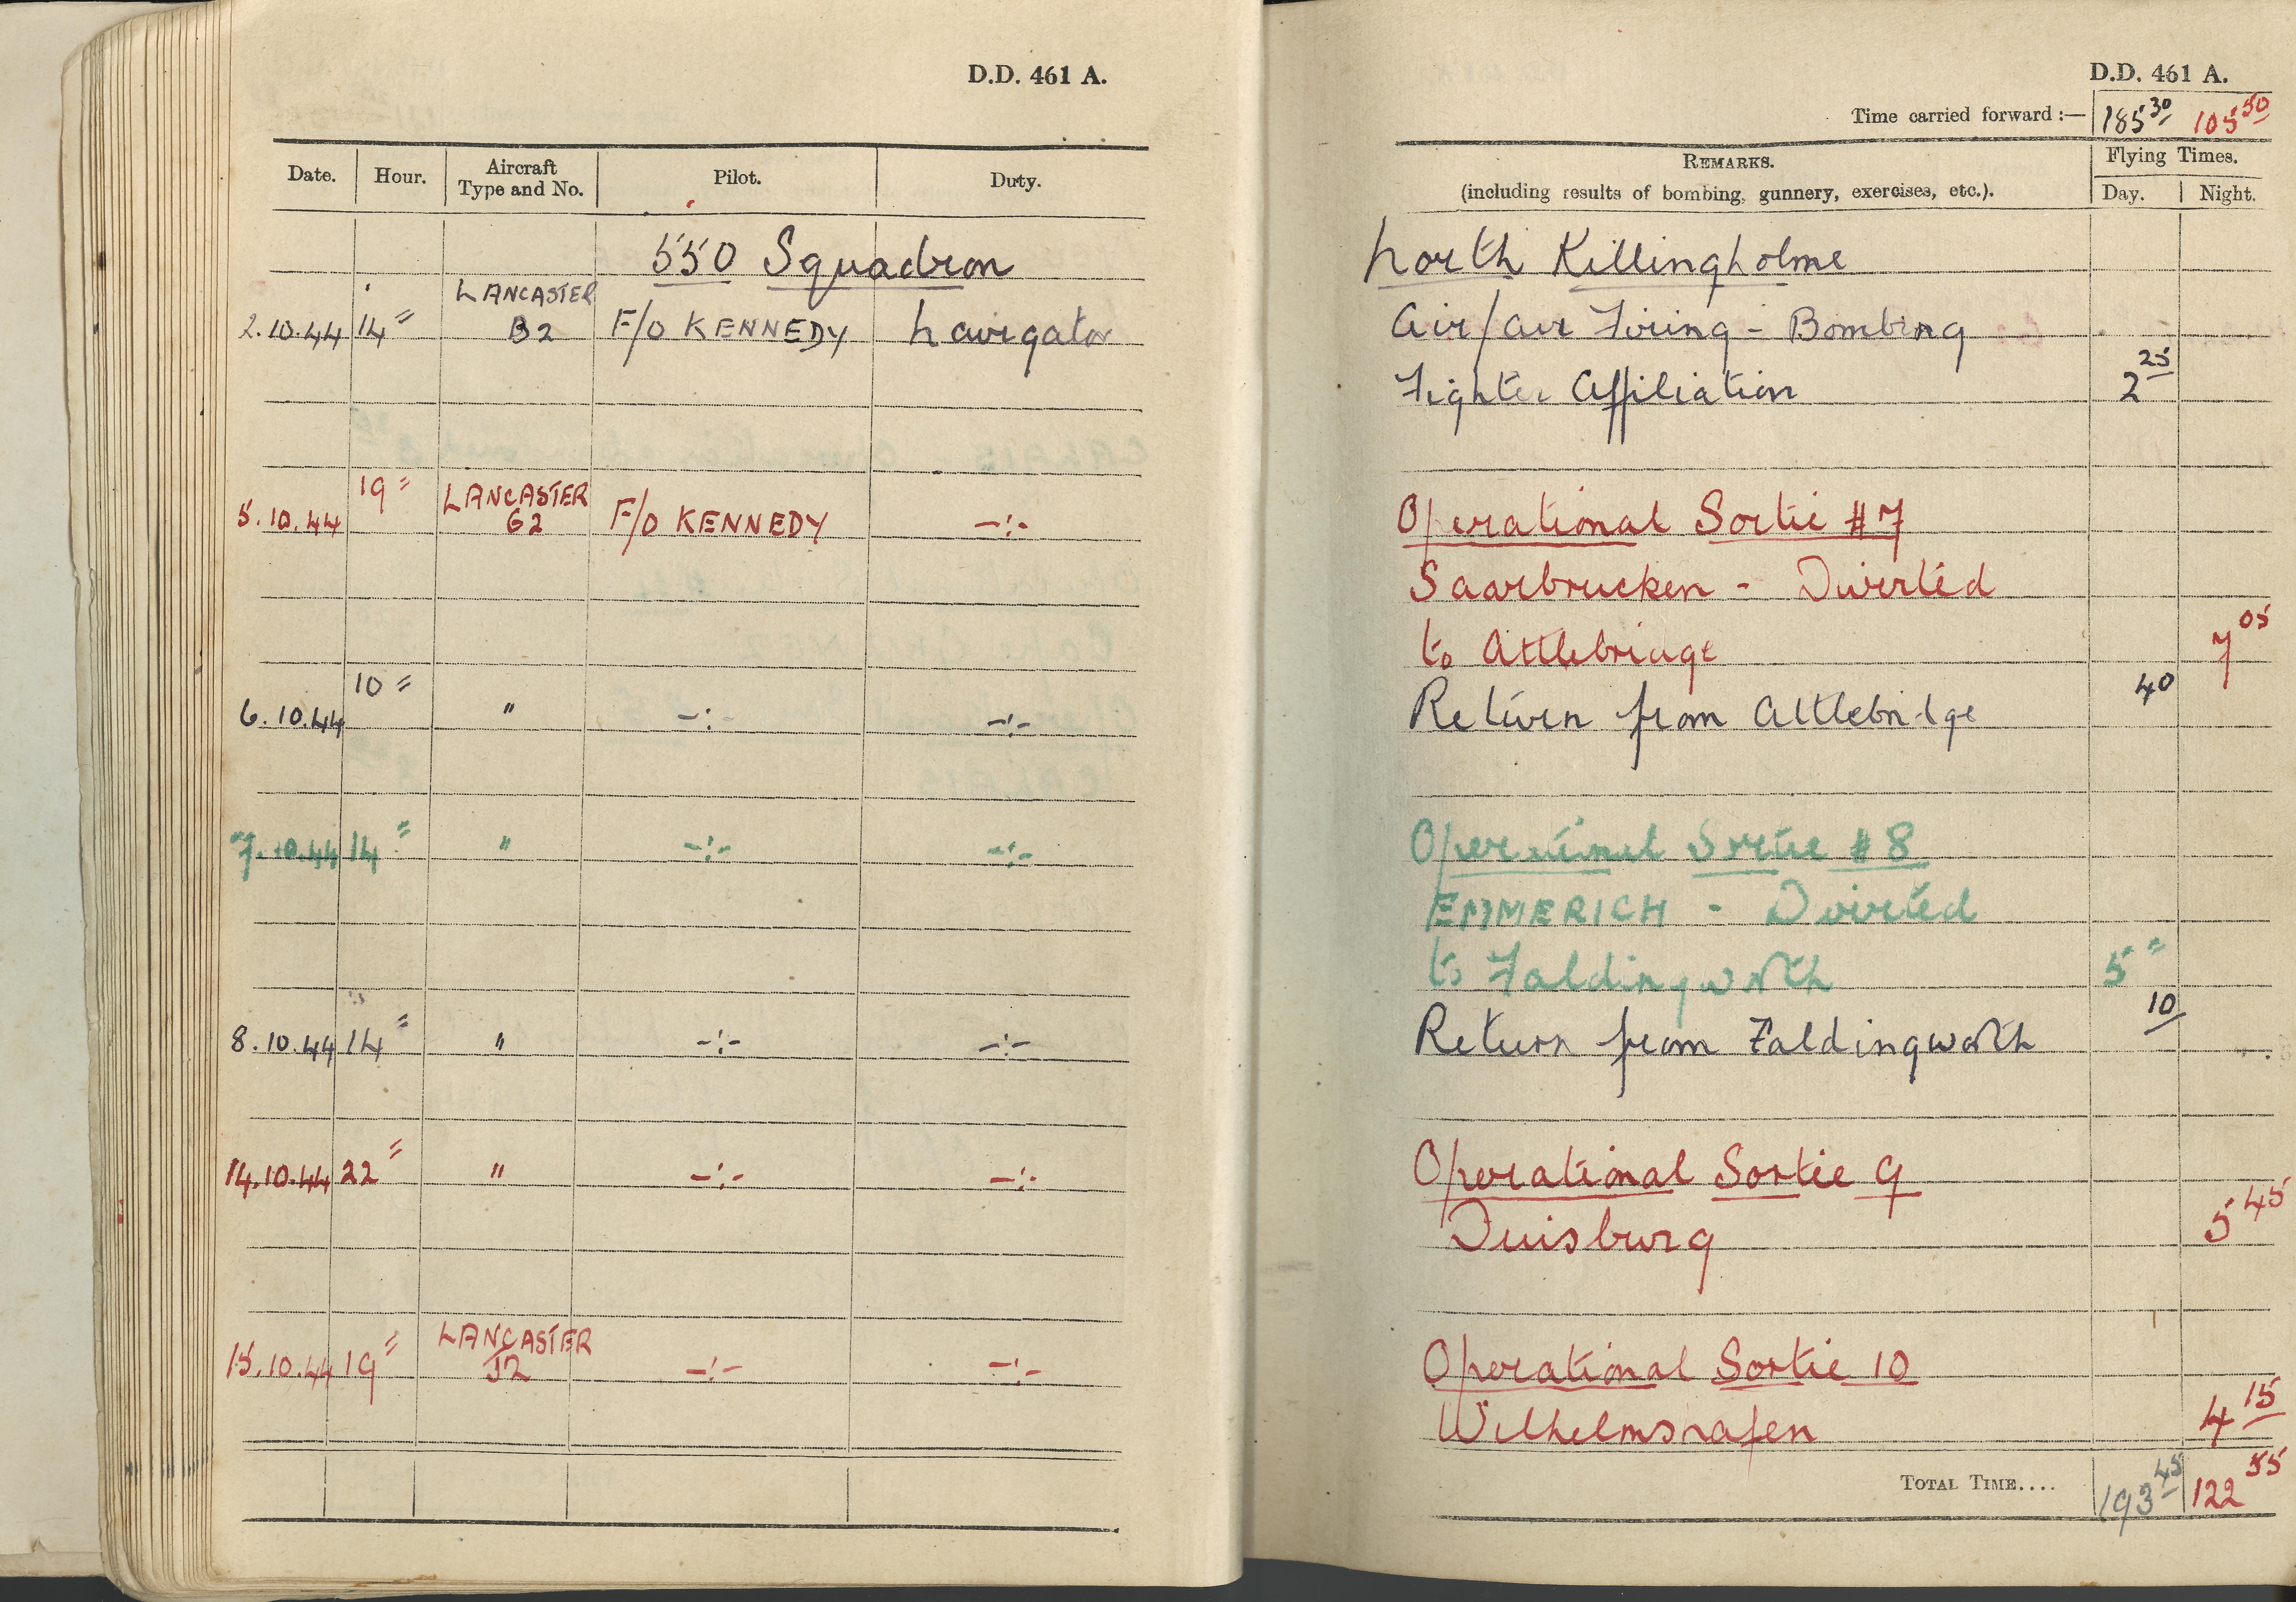 D.D. 461 A.
Date. Hour. Aircraft Type and No. Pilot. Duty.
550 Squadron
2.10.44 14 " LANCASTER B2 F/O KENNEDY Navigator
5.10.44 19 " LANCASTER G2 F/O KENNEDY -:-
6.10.44 10 " " -:- -:-
7.10.44 14 " " -:- -:-
8.10.44 14 " " -:- -:-
14.10.44 22 " " -:- -:-
15.10.44 19 " LANCASTER J2 -:- -:-
D.D. 461 A.
Time carried forward :— 185 30 105 50
REMARKS.
(including results of bombing, gunnery, exercises, etc.).
Flying Times.
Day. Night.
North Killingholme
Air/Air Firing - Bombing
Fighter Affiliation 2 25
Operational Sortie #7
Saarbrucken - Diverted
to Attlebridge 7 05
Return from Attlebridge 40
Operational Sortie #8
EMMERICH - Diverted
to Faldingworth 5 "
Return from Faldingworth 10
Operational Sortie 9
Duisburg 5 45
Operational Sortie 10
Wilhelmshafen 4 15
TOTAL TIME.... 193 45 122 55